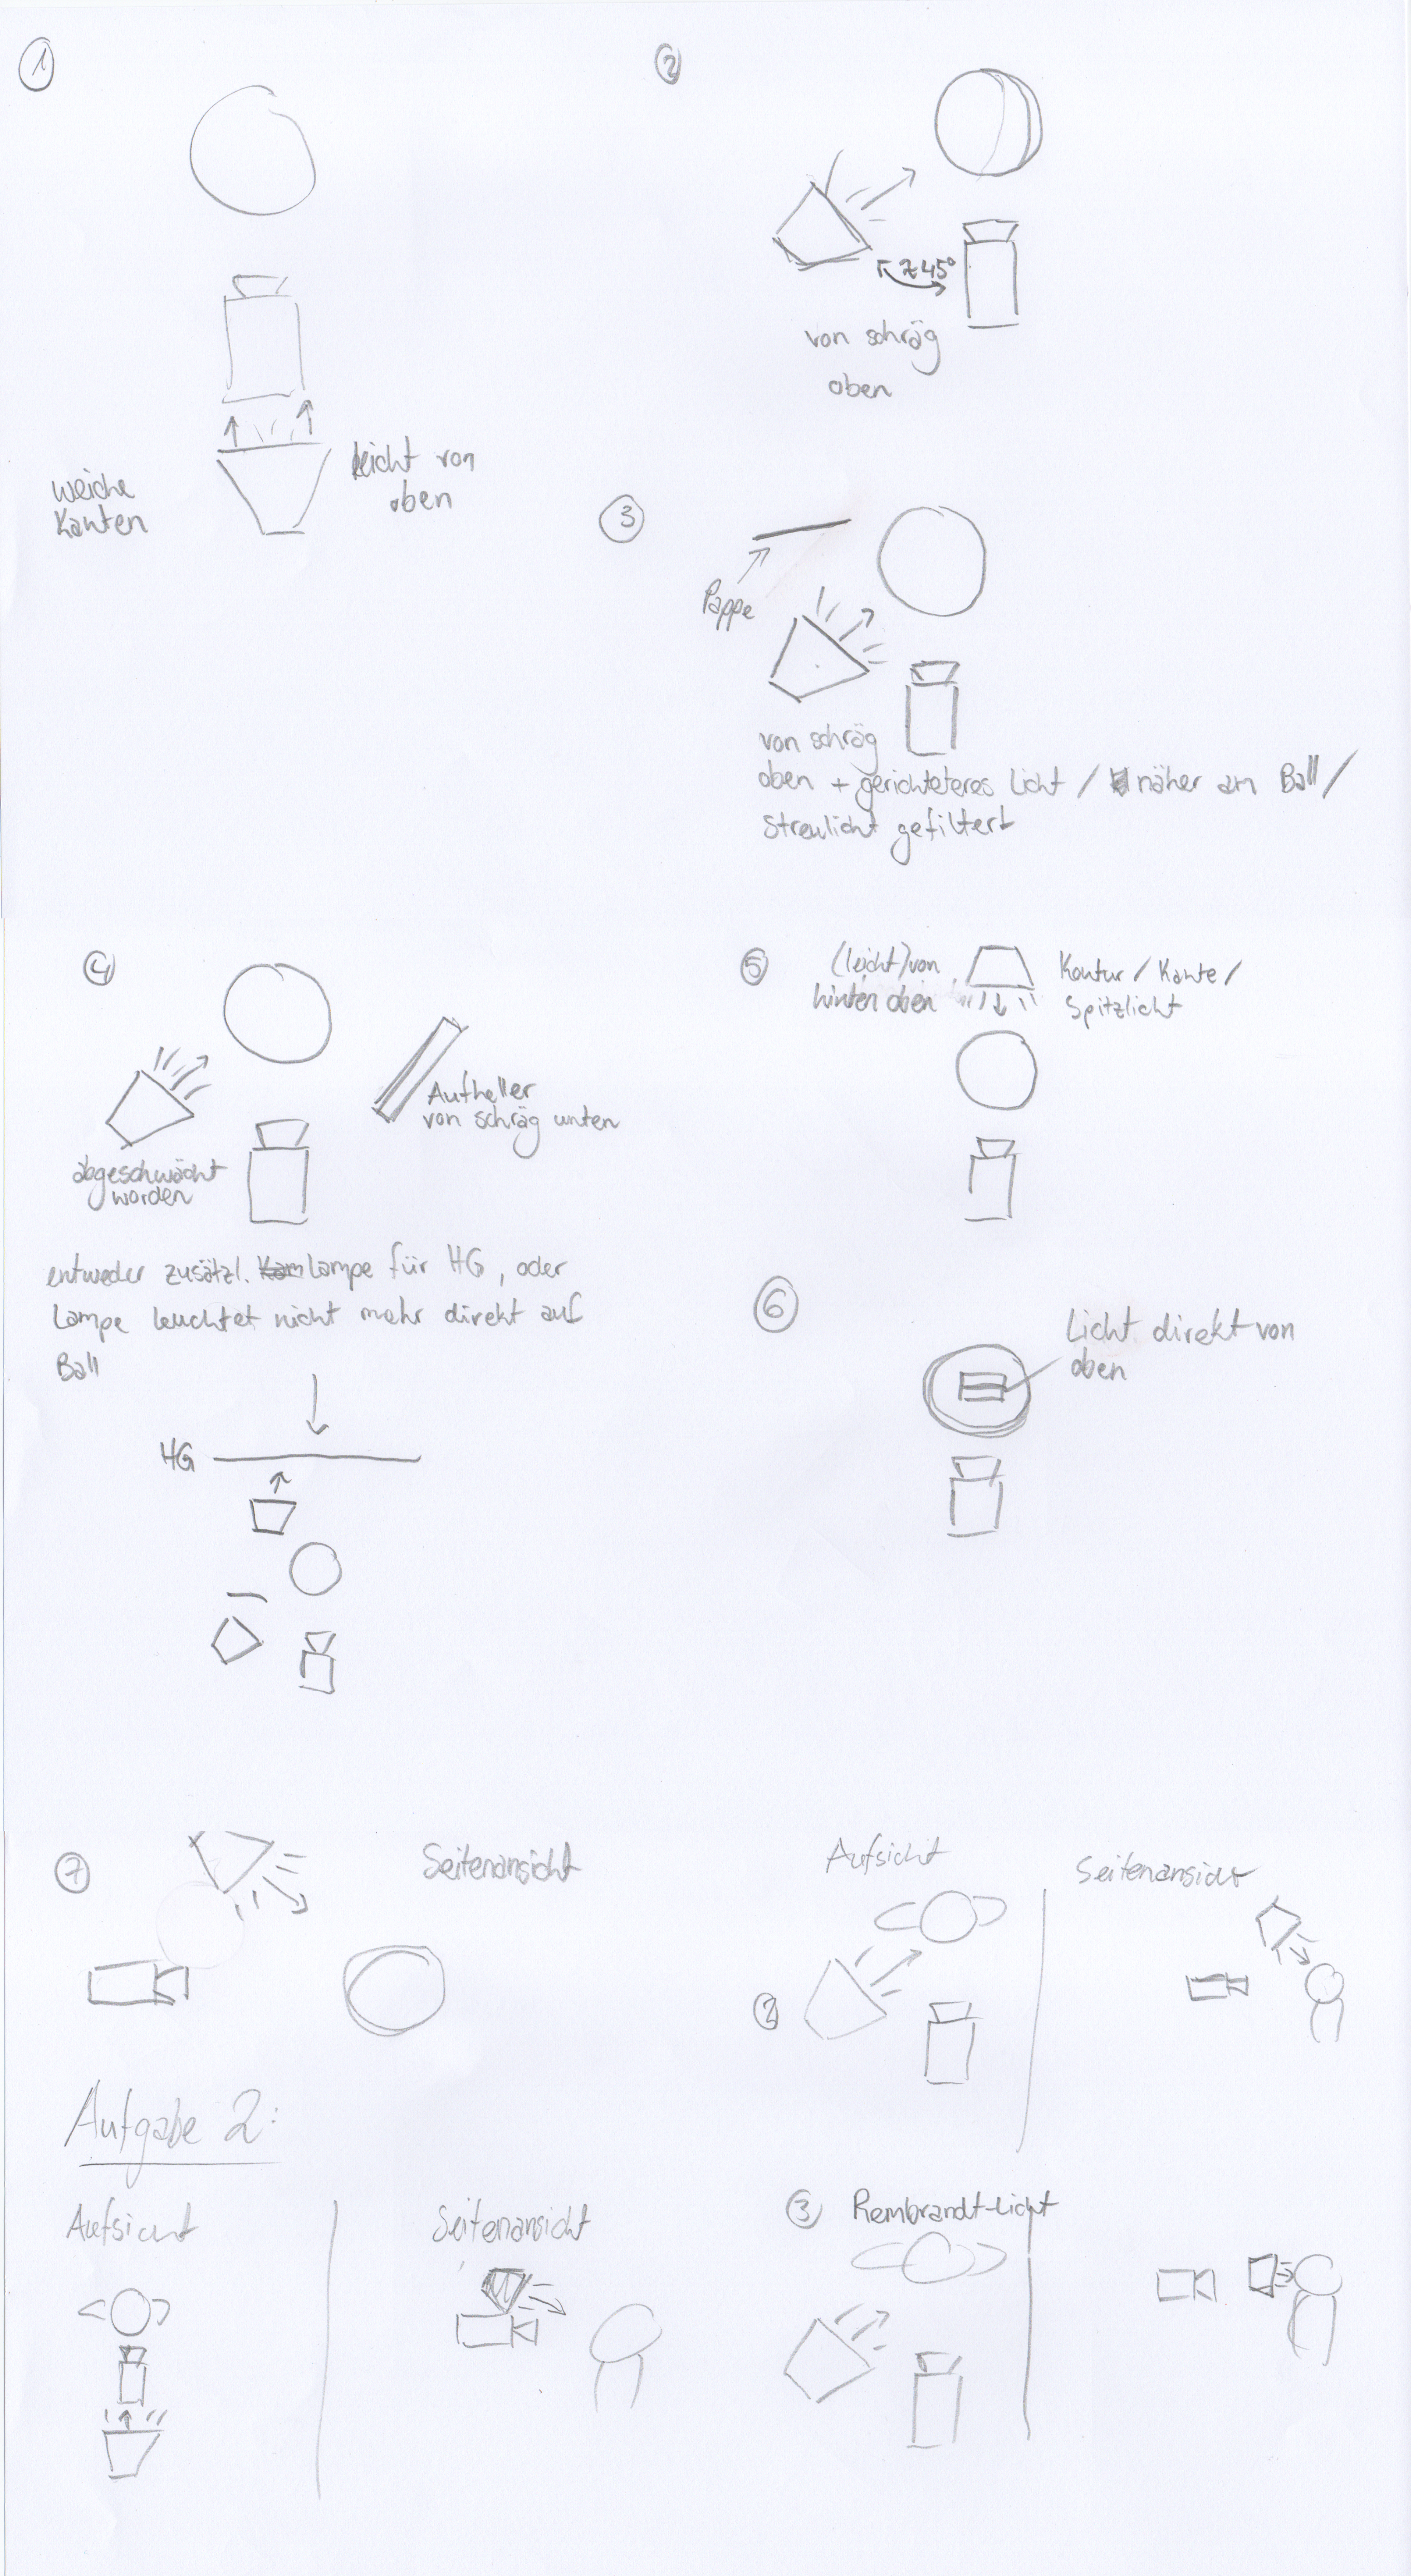 1
weiche
Kanten
leicht von
oben
2
∡ 45°
von schräg
oben
3
Pappe
von schräg
oben + gerichteteres Licht / näher am Ball /
Streulicht gefiltert
4
Aufheller
von schräg unten
abgeschwächt
worden
entweder zusätzl. Lampe für HG, oder
Lampe leuchtet nicht mehr direkt auf
Ball
HG
5
(leicht) von
hinten oben
Kontur / Kante /
Spitzlicht
6
Licht direkt von
oben
7
Seitenansicht
Aufgabe 2:
Aufsicht
Seitenansicht
Aufsicht
Seitenansicht
2
3 Rembrandt-Licht